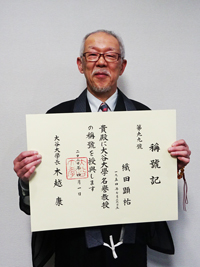 稱號記
第九九號
織田顕祐
貴殿に大谷大學名譽教授
の稱號を授與します
大谷大學長 木越 康